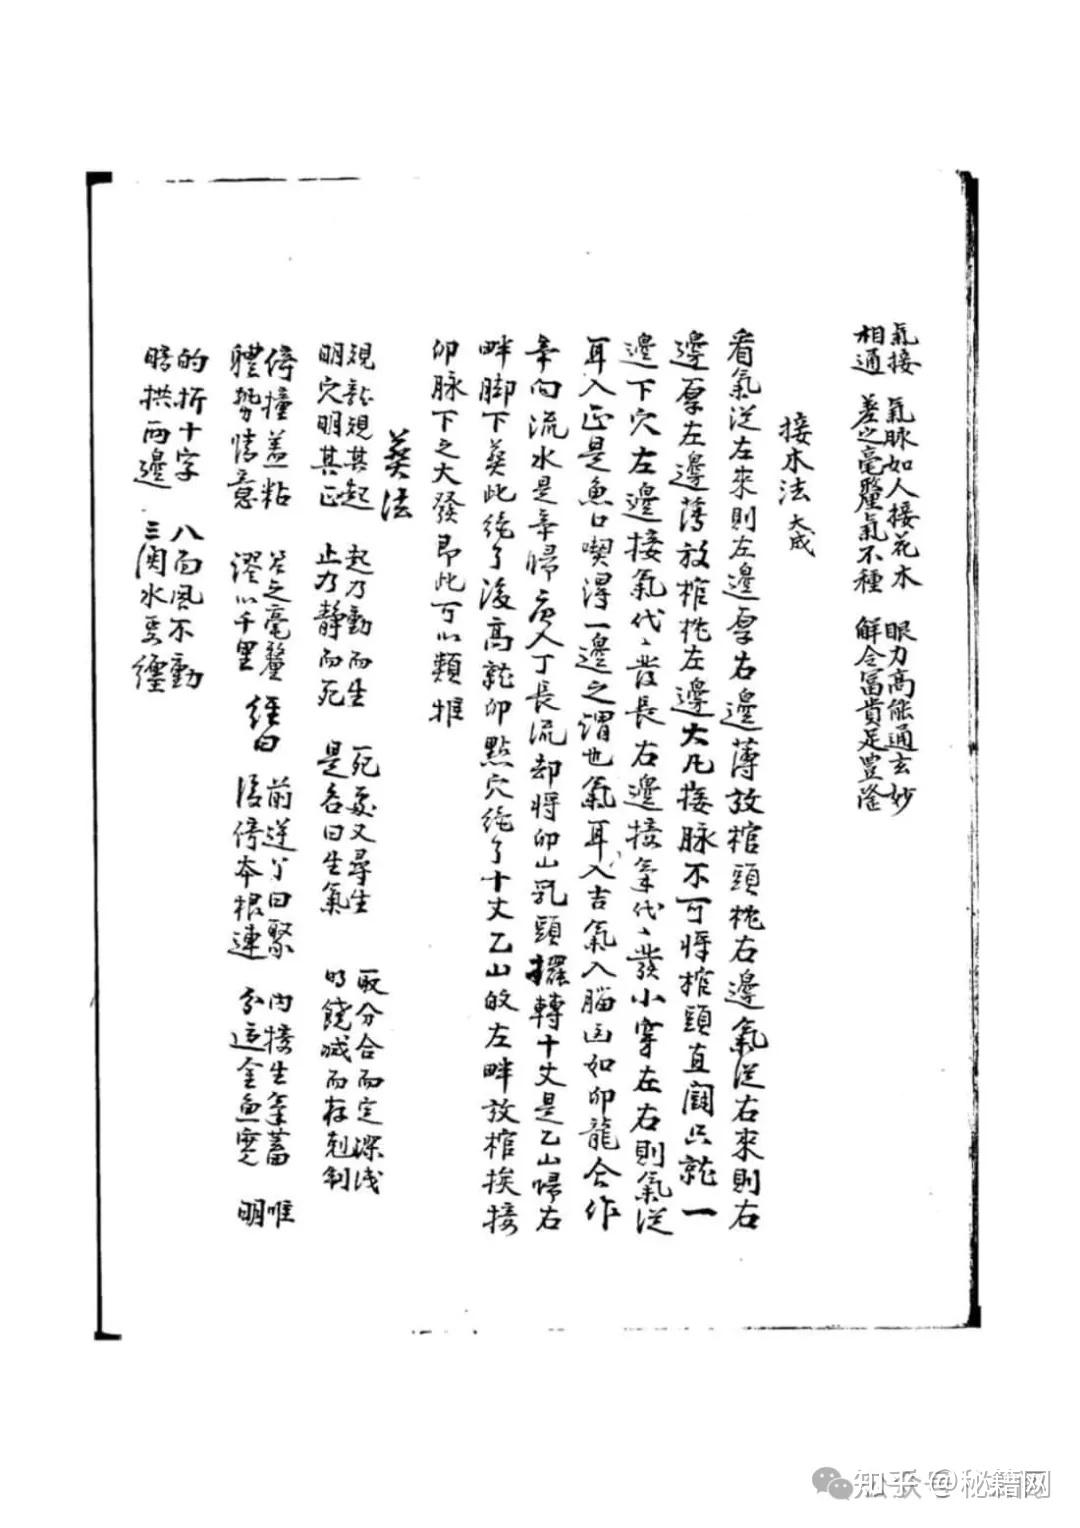 氣接 氣脉如人接花木 眼力高能通玄妙
相通 差之毫釐氣不種 解令冨貴足豊隆
接木法 大成
看氣從左來則左邊厚右邊薄放棺頭枕右邊氣從右來則右
邊厚左邊薄放棺枕左邊大凡接脉不可将棺頭直闘只就一
邊下穴左邊接氣代〻發長右邊接氣代〻發小穿左右則氣從
耳入正是魚口喫淂一邊之謂也氣耳入吉氣入腦凶如卯龍合作
辛向流水是辛歸庚入丁長流却将卯山乳頭擺轉十丈是乙山歸右
畔脚下葬此絶了後高就卯點穴絶了十丈乙山的左畔放棺挨接
卯脉下之大發即此可以類推
葬法
覌龍覌其起 起乃動而生 死處又尋生 取分合而定深浅
明穴明其正 止乃静而死 是名曰生氣 明饒减而存剋制
停撞盖粘 差之毫釐 前逆丫曰聚 内接生氣蓄 唯
體勢情意 謬以千里 經曰 後倚本根連 分這金魚 明
的折十字 八面風不動
暗拱两邊 三関水要纏
知乎 @秘籍网